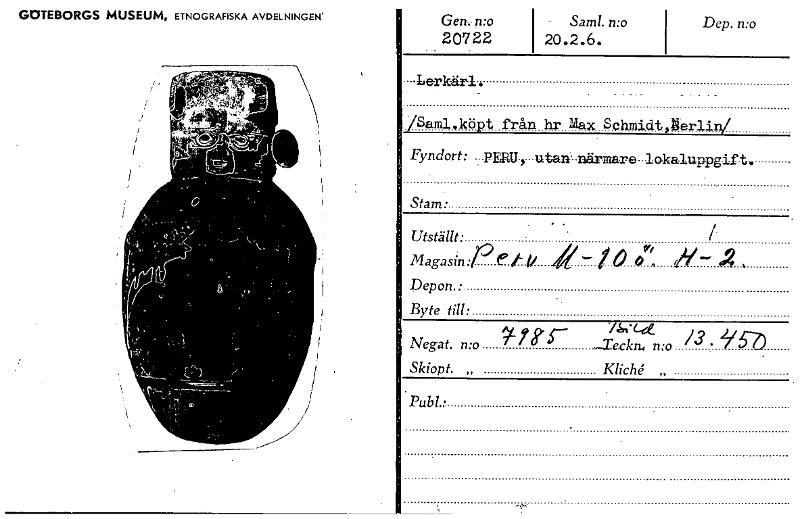 GÖTEBORGS MUSEUM, ETNOGRAFISKA AVDELNINGEN
Gen. n:o Saml. n:o Dep. n:o
20722 20.2.6.
Lerkärl.
/Saml.köpt från hr Max Schmidt,Berlin/
Fyndort: PERU, utan närmare lokaluppgift.
Stam:
Utställt:
Magasin: Peru M-10ö. H-2.
Depon.:
Byte till:
Negat. n:o 7985 Bild Teckn. n:o 13.450
Skiopt. „ Kliché „
Publ.: